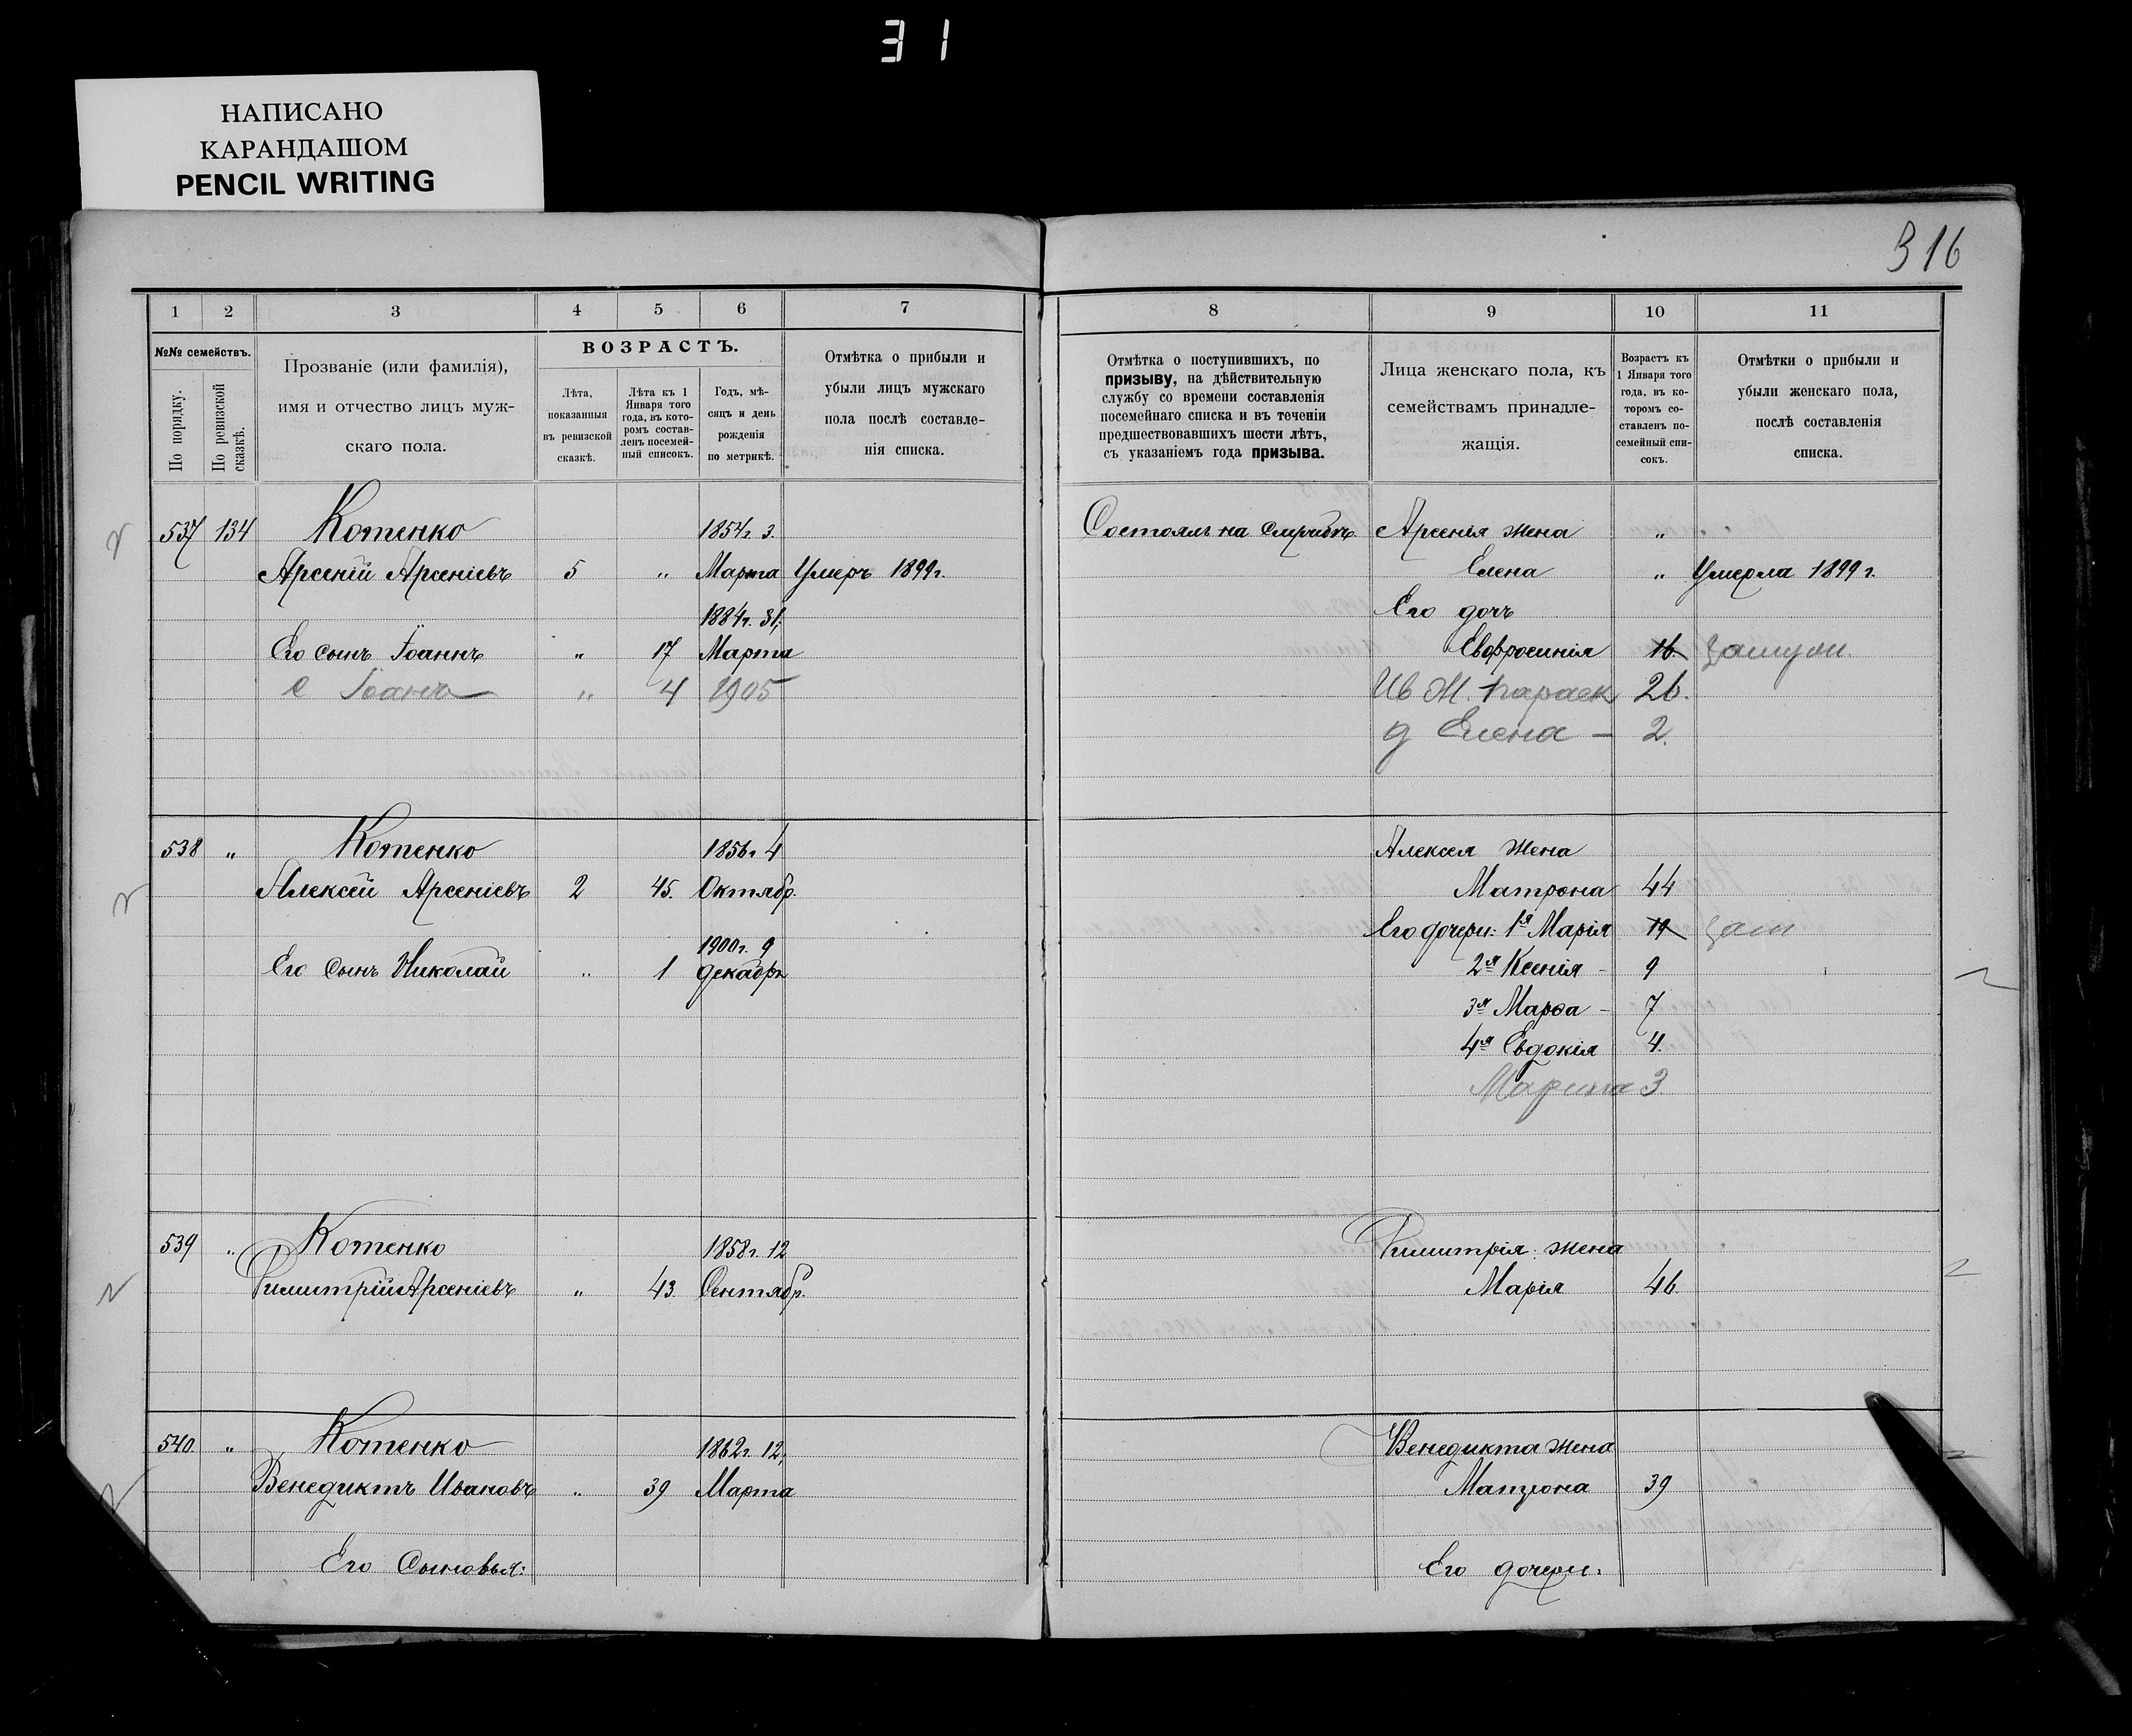 31
НАПИСАНО
КАРАНДАШОМ
PENCIL WRITING
316
1 2 3 4 5 6 7
№№ семействъ.
По порядку.
По ревизской сказкѣ.
Прозваніе (или фамилія),
имя и отчество лицъ муж-
скаго пола.
ВОЗРАСТЪ.
Лѣта,
показанныя
въ ревизской
сказкѣ.
Лѣта къ 1
Января того
года, въ кото-
ромъ состав-
ленъ посемей-
ный списокъ.
Годъ, мѣ-
сяцъ и день
рожденія
по метрикѣ.
Отмѣтка о прибыли и
убыли лицъ мужскаго
пола послѣ составле-
нія списка.
537 134 Котенко 1854г. 3.
Арсеній Арсеніевъ 5 „ Марта Умеръ 1899г.
1884г. 31,
Его сынъ Іоаннъ „ 17 Марта
с Іоанъ „ 4 1905
538 „ Котенко 1856г. 4
Алексѣй Арсеніевъ 2 45. Октябр.
1900г. 9
Его Сынъ Николай „ 1 декабря
539 „ Котенко 1858г. 12
Димитрій Арсеніевъ „ 43. Сентябр.
540 „ Котенко 1862г. 12,
Венедиктъ Ивановъ „ 39 Марта
Его Сыновья:
8 9 10 11
Отмѣтка о поступившихъ, по
призыву, на дѣйствительную
службу со времени составленія
посемейнаго списка и въ теченіи
предшествовавшихъ шести лѣтъ,
съ указаніемъ года призыва.
Лица женскаго пола, къ
семействамъ принадле-
жащія.
Возрастъ къ
1 Января того
года, въ ко-
торомъ со-
ставленъ по-
семейный спи-
сокъ.
Отмѣтки о прибыли и
убыли женскаго пола,
послѣ составленія
списка.
Состоялъ на Арсенія жена „
Елена „ Умерла 1899 г.
Его дочь
Евфросинія 16. Замуж.
Ив М. Параск 26.
д Елена — 2.
Алексея жена
Матрона 44
Его дочери: 1я Марія 19 Зам
2я Ксенія - 9
3я Марѳа - 7
4я Евдокія 4.
Марина 3
Димитрія жена
Марія 46
Венедикта жена
Матрона 39
Его дочери: